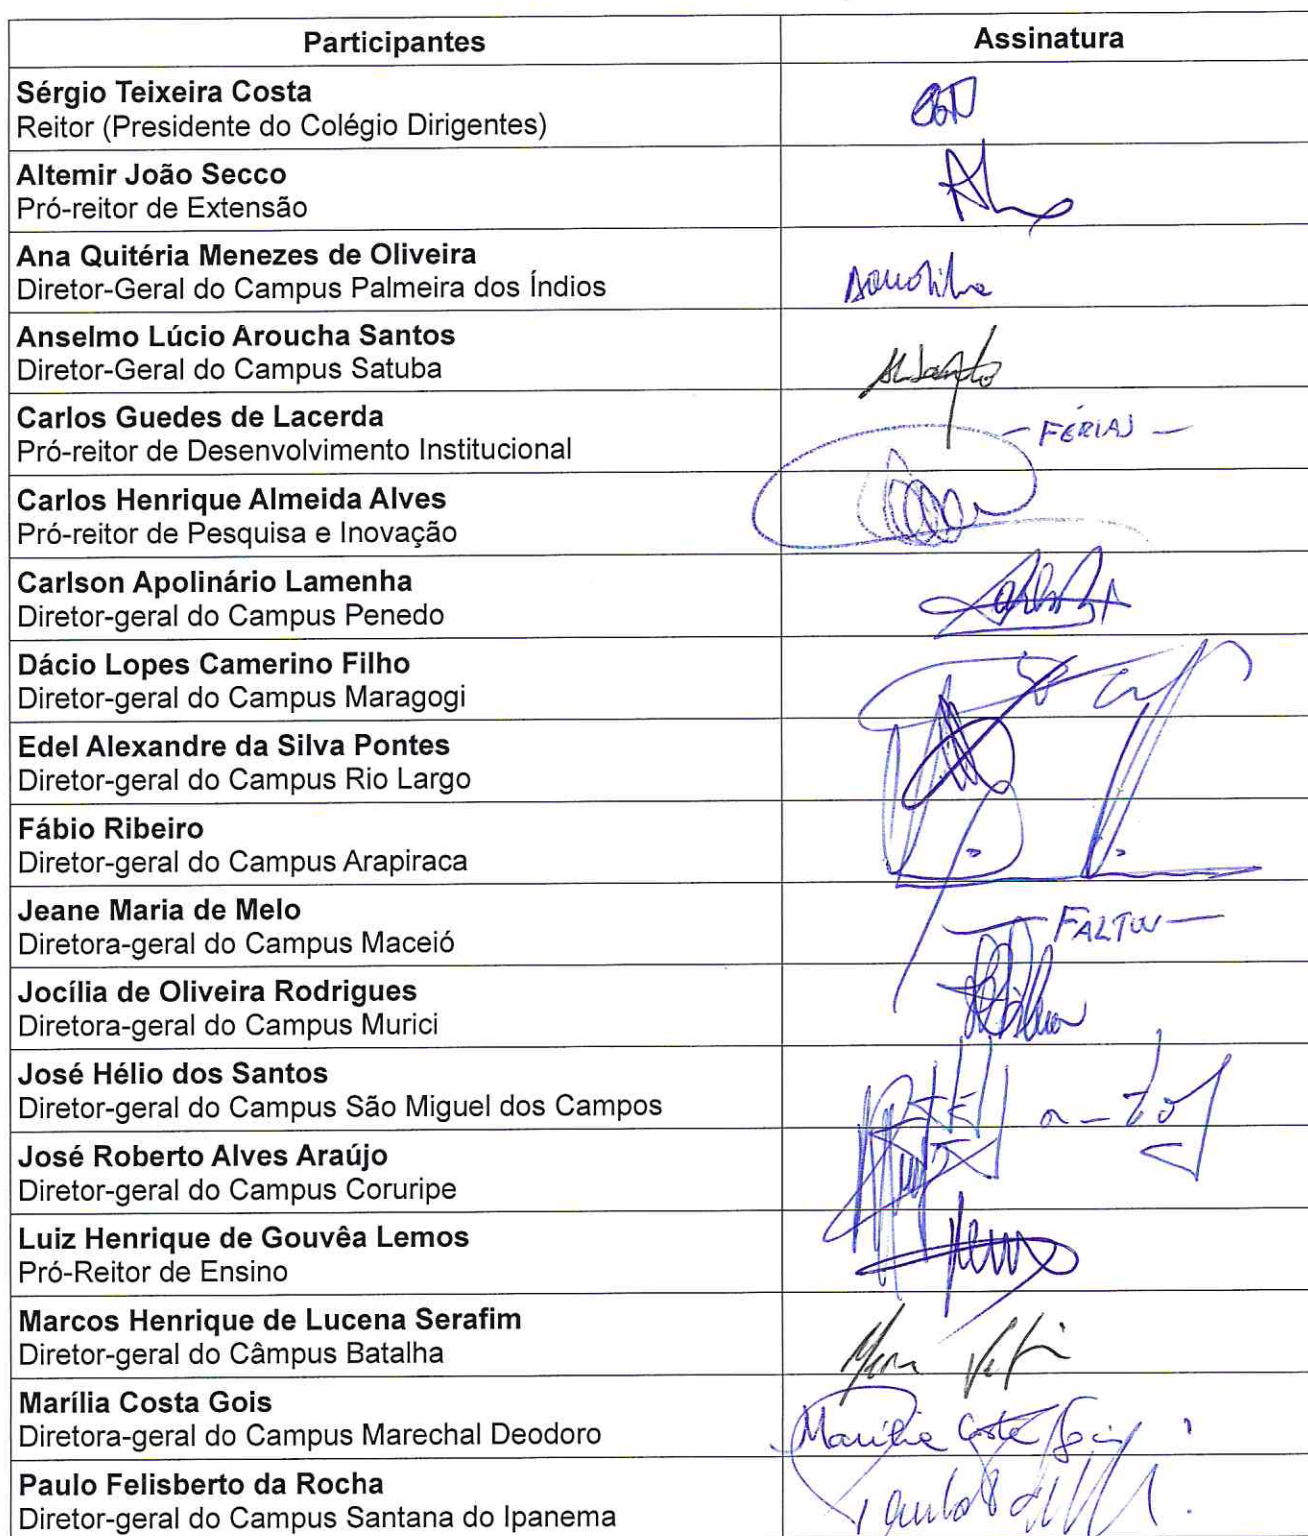 Participantes
Assinatura
Sérgio Teixeira Costa
Reitor (Presidente do Colégio Dirigentes)
Altemir João Secco
Pró-reitor de Extensão
Ana Quitéria Menezes de Oliveira
Diretor-Geral do Campus Palmeira dos Índios
Anselmo Lúcio Aroucha Santos
Diretor-Geral do Campus Satuba
Carlos Guedes de Lacerda
Pró-reitor de Desenvolvimento Institucional
- FÉRIAS -
Carlos Henrique Almeida Alves
Pró-reitor de Pesquisa e Inovação
Carlson Apolinário Lamenha
Diretor-geral do Campus Penedo
Dácio Lopes Camerino Filho
Diretor-geral do Campus Maragogi
Edel Alexandre da Silva Pontes
Diretor-geral do Campus Rio Largo
Fábio Ribeiro
Diretor-geral do Campus Arapiraca
Jeane Maria de Melo
Diretora-geral do Campus Maceió
- FALTOU -
Jocília de Oliveira Rodrigues
Diretora-geral do Campus Murici
José Hélio dos Santos
Diretor-geral do Campus São Miguel dos Campos
José Roberto Alves Araújo
Diretor-geral do Campus Coruripe
Luiz Henrique de Gouvêa Lemos
Pró-Reitor de Ensino
Marcos Henrique de Lucena Serafim
Diretor-geral do Câmpus Batalha
Marília Costa Gois
Diretora-geral do Campus Marechal Deodoro
Marília Costa Gois
Paulo Felisberto da Rocha
Diretor-geral do Campus Santana do Ipanema